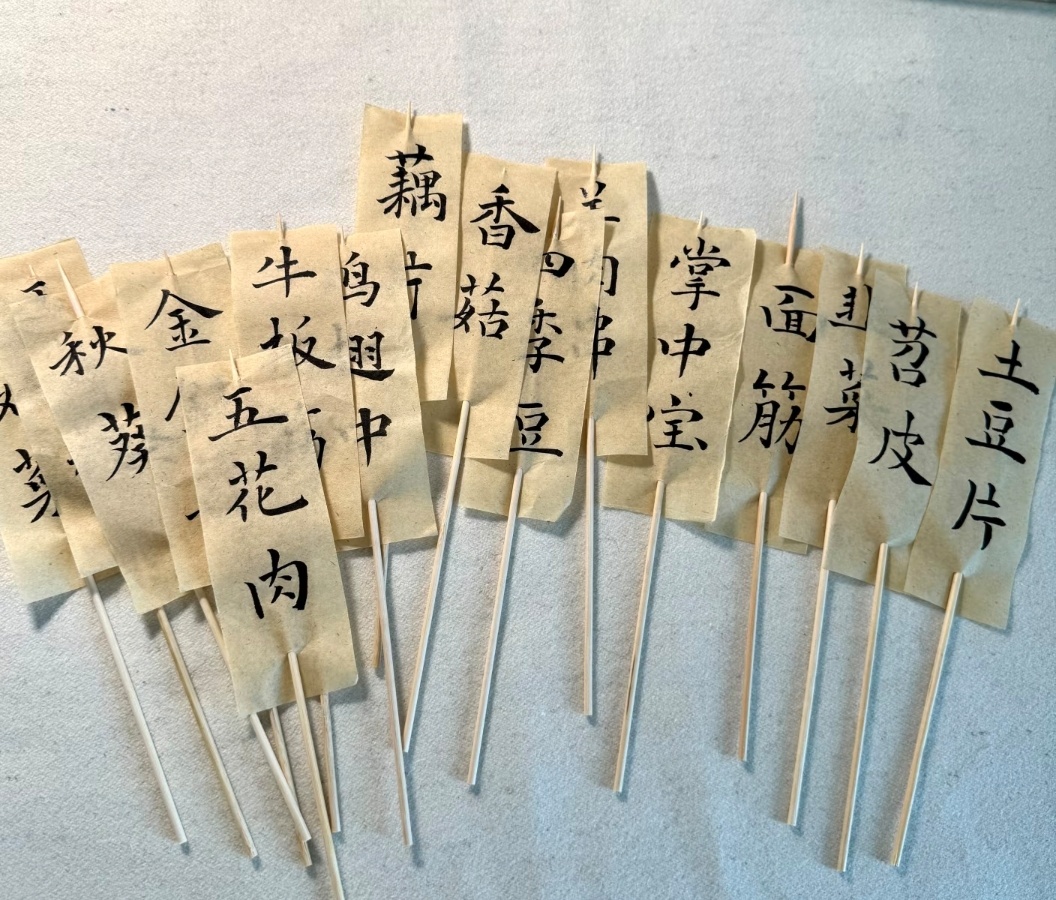 菜
秋葵
金
牛板筋
五花肉
鸡翅中
藕片
香菇
四季豆
羊肉串
掌中宝
面筋
韭菜
苕皮
土豆片